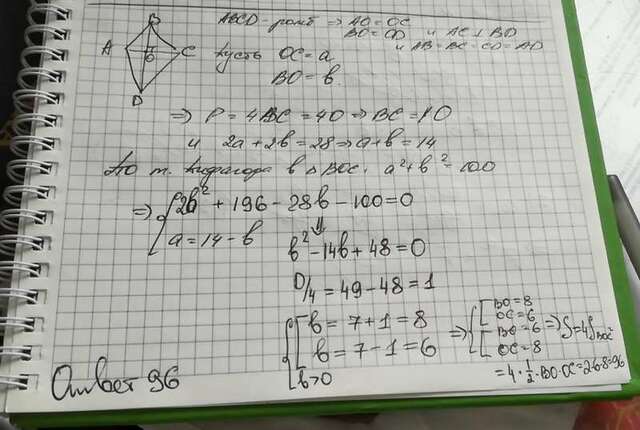 B
A
C
O
D
ABCD - ромб ⇒ AO = OC
BO = OD и AC ⊥ BD
и AB = BC = CD = AD
Пусть OC = a
BO = b
⇒ P = 4BC = 40 ⇒ BC = 10
и 2a + 2b = 28 ⇒ a + b = 14
По т. Пифагора в △BOC: a² + b² = 100
⇒ { 2b² + 196 - 28b - 100 = 0
a = 14 - b
⇓
b² - 14b + 48 = 0
D/4 = 49 - 48 = 1
{ [ b = 7 + 1 = 8
b = 7 - 1 = 6
b > 0
⇒ { [ BO = 8
OC = 6
BO = 6
OC = 8
⇒ S = 4S BOC
= 4 · 1/2 · BO · OC = 2·6·8 = 96
Ответ 96